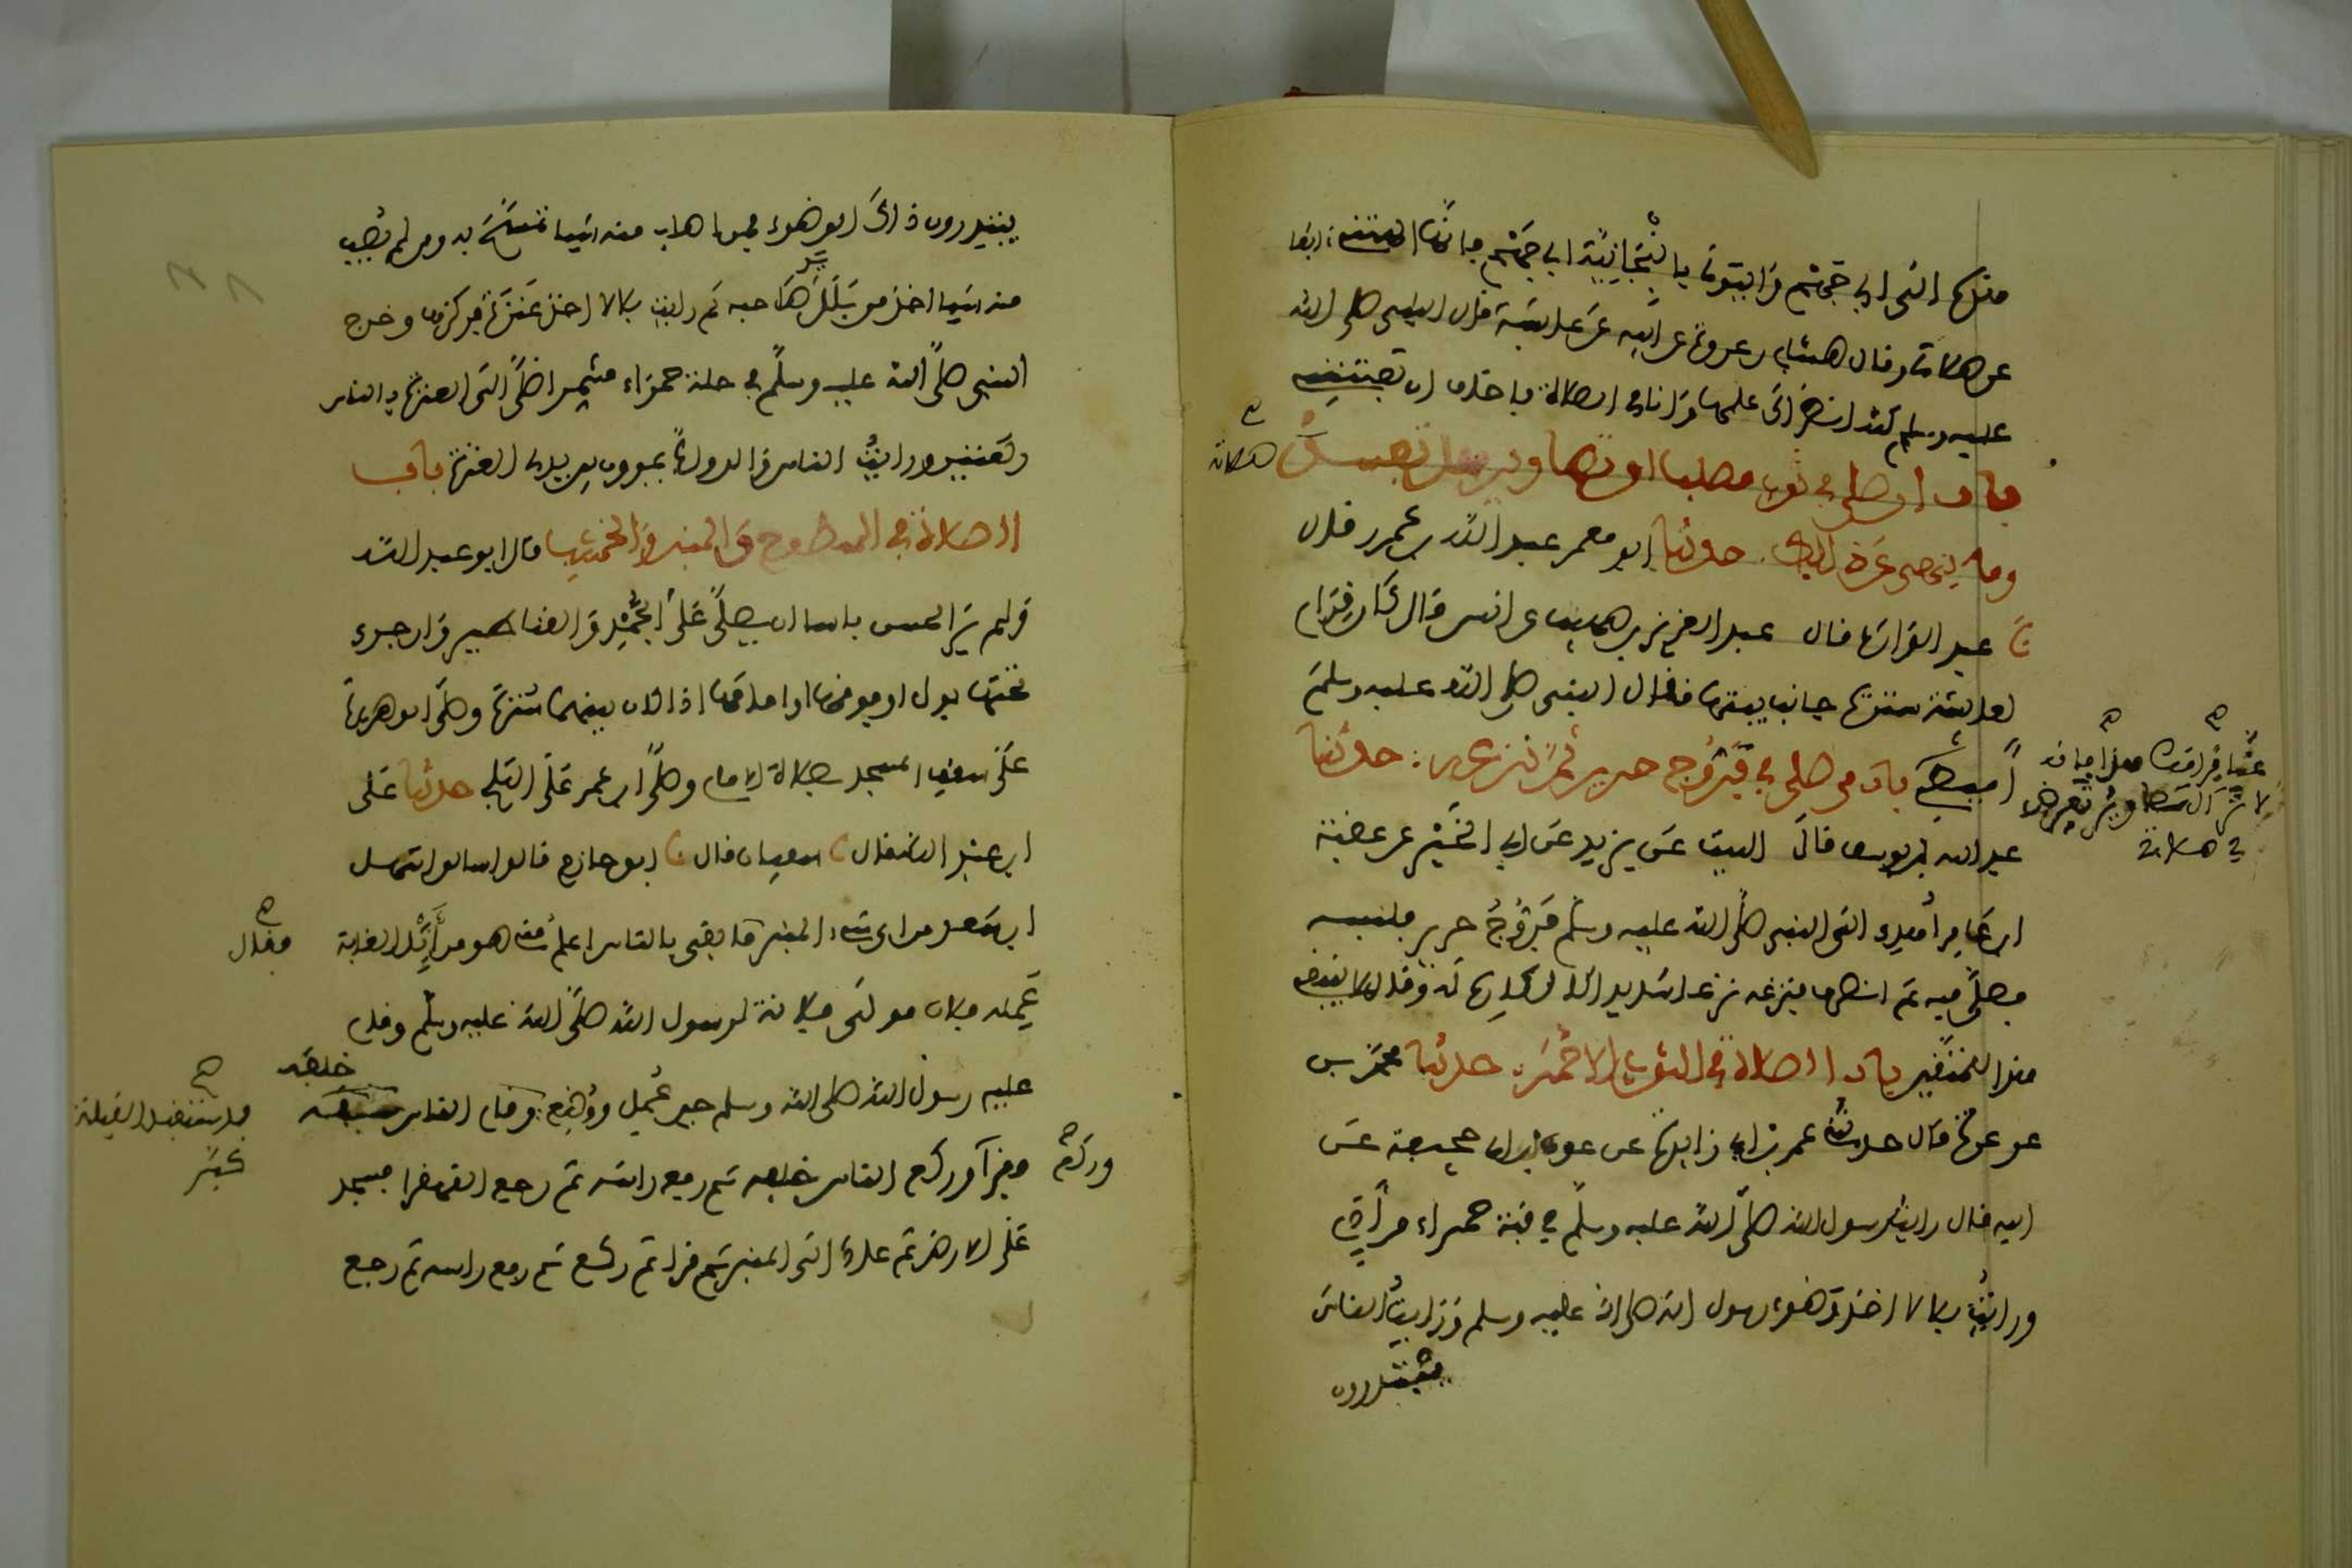 هذه الى ابي جهم واتوني بانبجانية ابي جهم فانها الهتني آنفا
عن صلاتي وقال هشام بن عروة عن ابيه عن عايشة قال النبي صلى الله
عليه وسلم كنت انظر الى علمها وانا في الصلاة فاخاف ان تفتنني
باب ان صلى في ثوب مصلب او تصاوير هل تفسد
صلاته
وما ينهى عن ذلك حدثنا ابو معمر عبد الله بن عمرو قال
نا عبد الوارث قال عبد العزيز بن صهيب عن انس قال كان قرام
لعايشة سترت جانب بيتها فقال النبي صلى الله عليه وسلم
اميطي
عنا قرامك هذا فانه
لا تزال تصاوير تعرض
في صلاتي
باب من صلى في فروج حرير ثم نزعه : حدثنا
عبد الله بن يوسف قال الليث عن يزيد عن ابي الخير عن عقبة
ابن عامر اهدي الى النبي صلى الله عليه وسلم فروج حرير فلبسه
فصلى فيه ثم انصرف فنزعه نزعا شديدا كالكاره له وقال لا ينبغي
هذا للمتقين باب الصلاة في الثوب الاحمر : حدثنا محمد بن
عرعرة قال حدثني عمر بن ابي زايدة عن عون بن ابي جحيفة عن
ابيه قال رايت رسول الله صلى الله عليه وسلم في قبة حمراء من ادم
ورايت بلالا اخذ وضوء رسول الله صلى الله عليه وسلم ورايت الناس
يبتدرون
يبتدرون ذاك الوضوء فمن اصاب منه شيا تمسح به ومن لم يصب
منه شيا اخذ من بلل يد صاحبه ثم رايت بلالا اخذ عنزة فركزها وخرج
النبي صلى الله عليه وسلم في حلة حمراء مشمرا صلى الى العنزة بالناس
ركعتين ورايت الناس والدواب يمرون بين يدي العنزة باب
الصلاة في السطوح والمنبر والخشب قال ابو عبد الله
ولم ير الحسن باسا ان يصلى على الجمد والقناطير وان جرى
تحتها بول او فوقها او امامها اذا كان بينهما سترة وصلى ابو هريرة
على سقف المسجد بصلاة الامام وصلى ابن عمر على الثلج حدثنا على
ابن عبد الله قال نا سفيان قال نا ابو حازم قال سالوا سهل
ابن سعد من اي شيء المنبر ما بقي بالناس اعلم منه هو من اثل الغابة
فقال
عمله فلان مولى فلانة لرسول الله صلى الله عليه وسلم وقام
عليه رسول الله صلى الله وسلم حين عمل ووضع وقام الناس خلفه
فاستقبل القبلة
كبر
فقرا وركع الناس خلفه ثم رفع راسه ثم رجع القهقرا فسجد
وركع
على الارض ثم عاد الى المنبر ثم قرا ثم ركع ثم رفع راسه ثم رجع